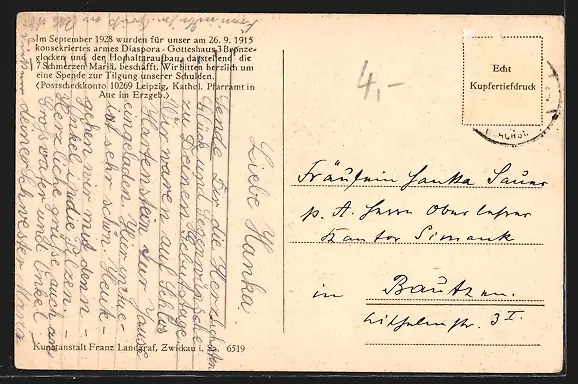 Im September 1928 wurden für unser am 26. 9. 1915
konsekriertes armes Diaspora - Gotteshaus 3 Bronze-
glocken und den Hochaltaraufbau, darstellend die
7 Schmerzen Mariä, beschafft. Wir bitten herzlich um
eine Spende zur Tilgung unserer Schulden.
(Postscheckkonto 10269 Leipzig, Kathol. Pfarramt in
Aue im Erzgeb.)
4,-
Echt
Kupfertiefdruck
Liebe Hanka!
Sende Dir die herzlichsten
Glück und Segenswünsche
zu Deinem Geburtstage.
Wir waren auf Schloss
Hartenstein zur Jause
eingeladen. Hier in Aue
ist sehr schön. Heute
gehen wir mit dem
Onkel in die Pilzen
Herzliche Grüsse auch an
Grossvater und Onkel
Deine Schwester
Fräulein Hanka Sauer
p. A. Herrn Oberlehrer
Kantor Simank
in Bautzen.
Wilhelmstr. 3 I.
Kunstanstalt Franz Landgraf, Zwickau i. Sa. 6519